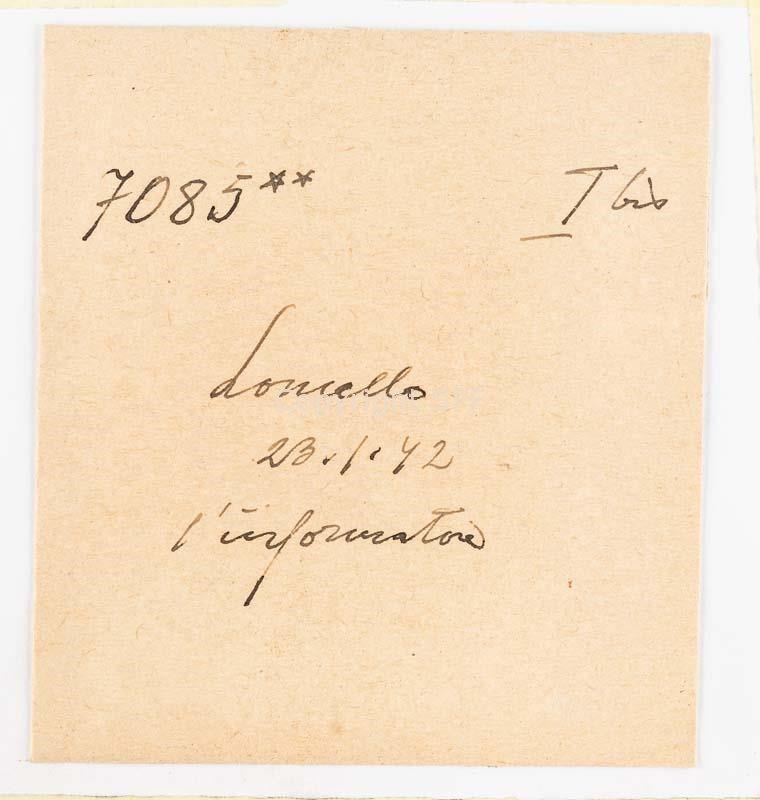 7085** I bis
Lomello
23.1.42
l'informatore